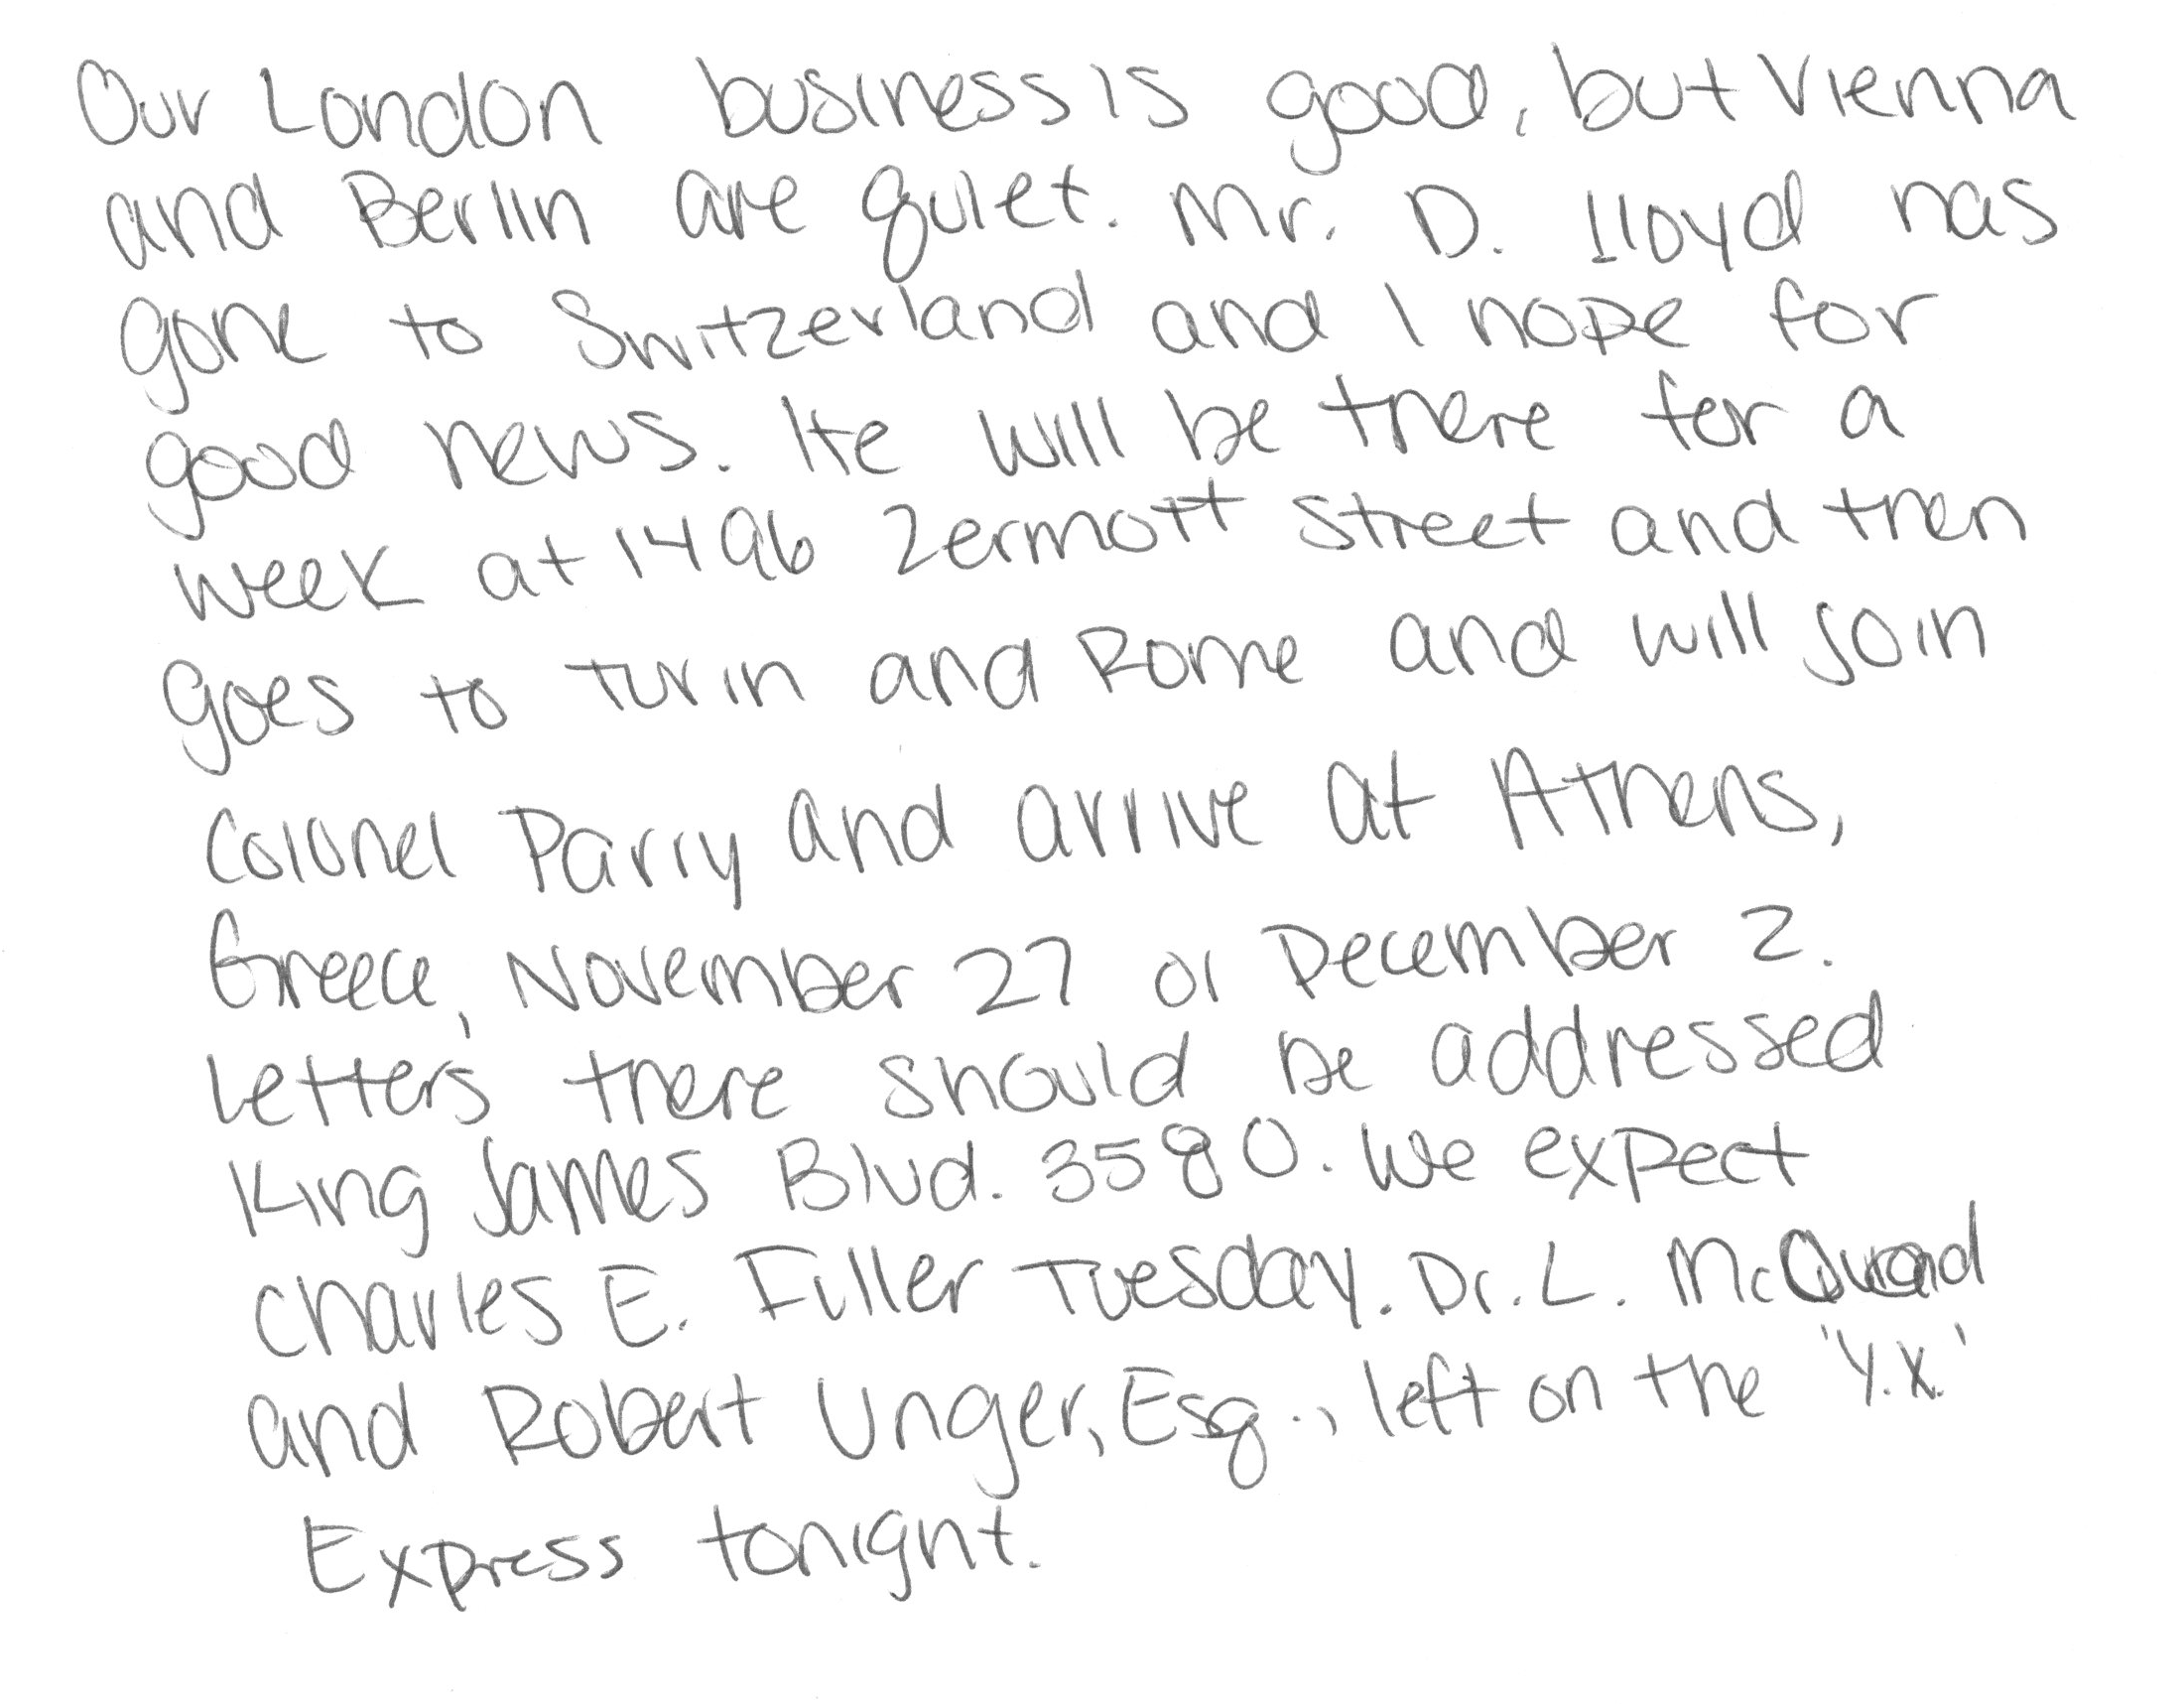 Our London business is good, but Vienna
and Berlin are quiet. Mr. D. Lloyd has
gone to Switzerland and I hope for
good news. He will be there for a
week at 1496 Zermott Street and then
goes to Turin and Rome and will join
Colonel Parry and arrive at Athens,
Greece, November 27 or December 2.
Letters there should be addressed
King James Blvd. 3580. We expect
Charles E. Fuller Tuesday. Dr. L. McQuaid
and Robert Unger, Esq., left on the 'Y.X.'
Express tonight.